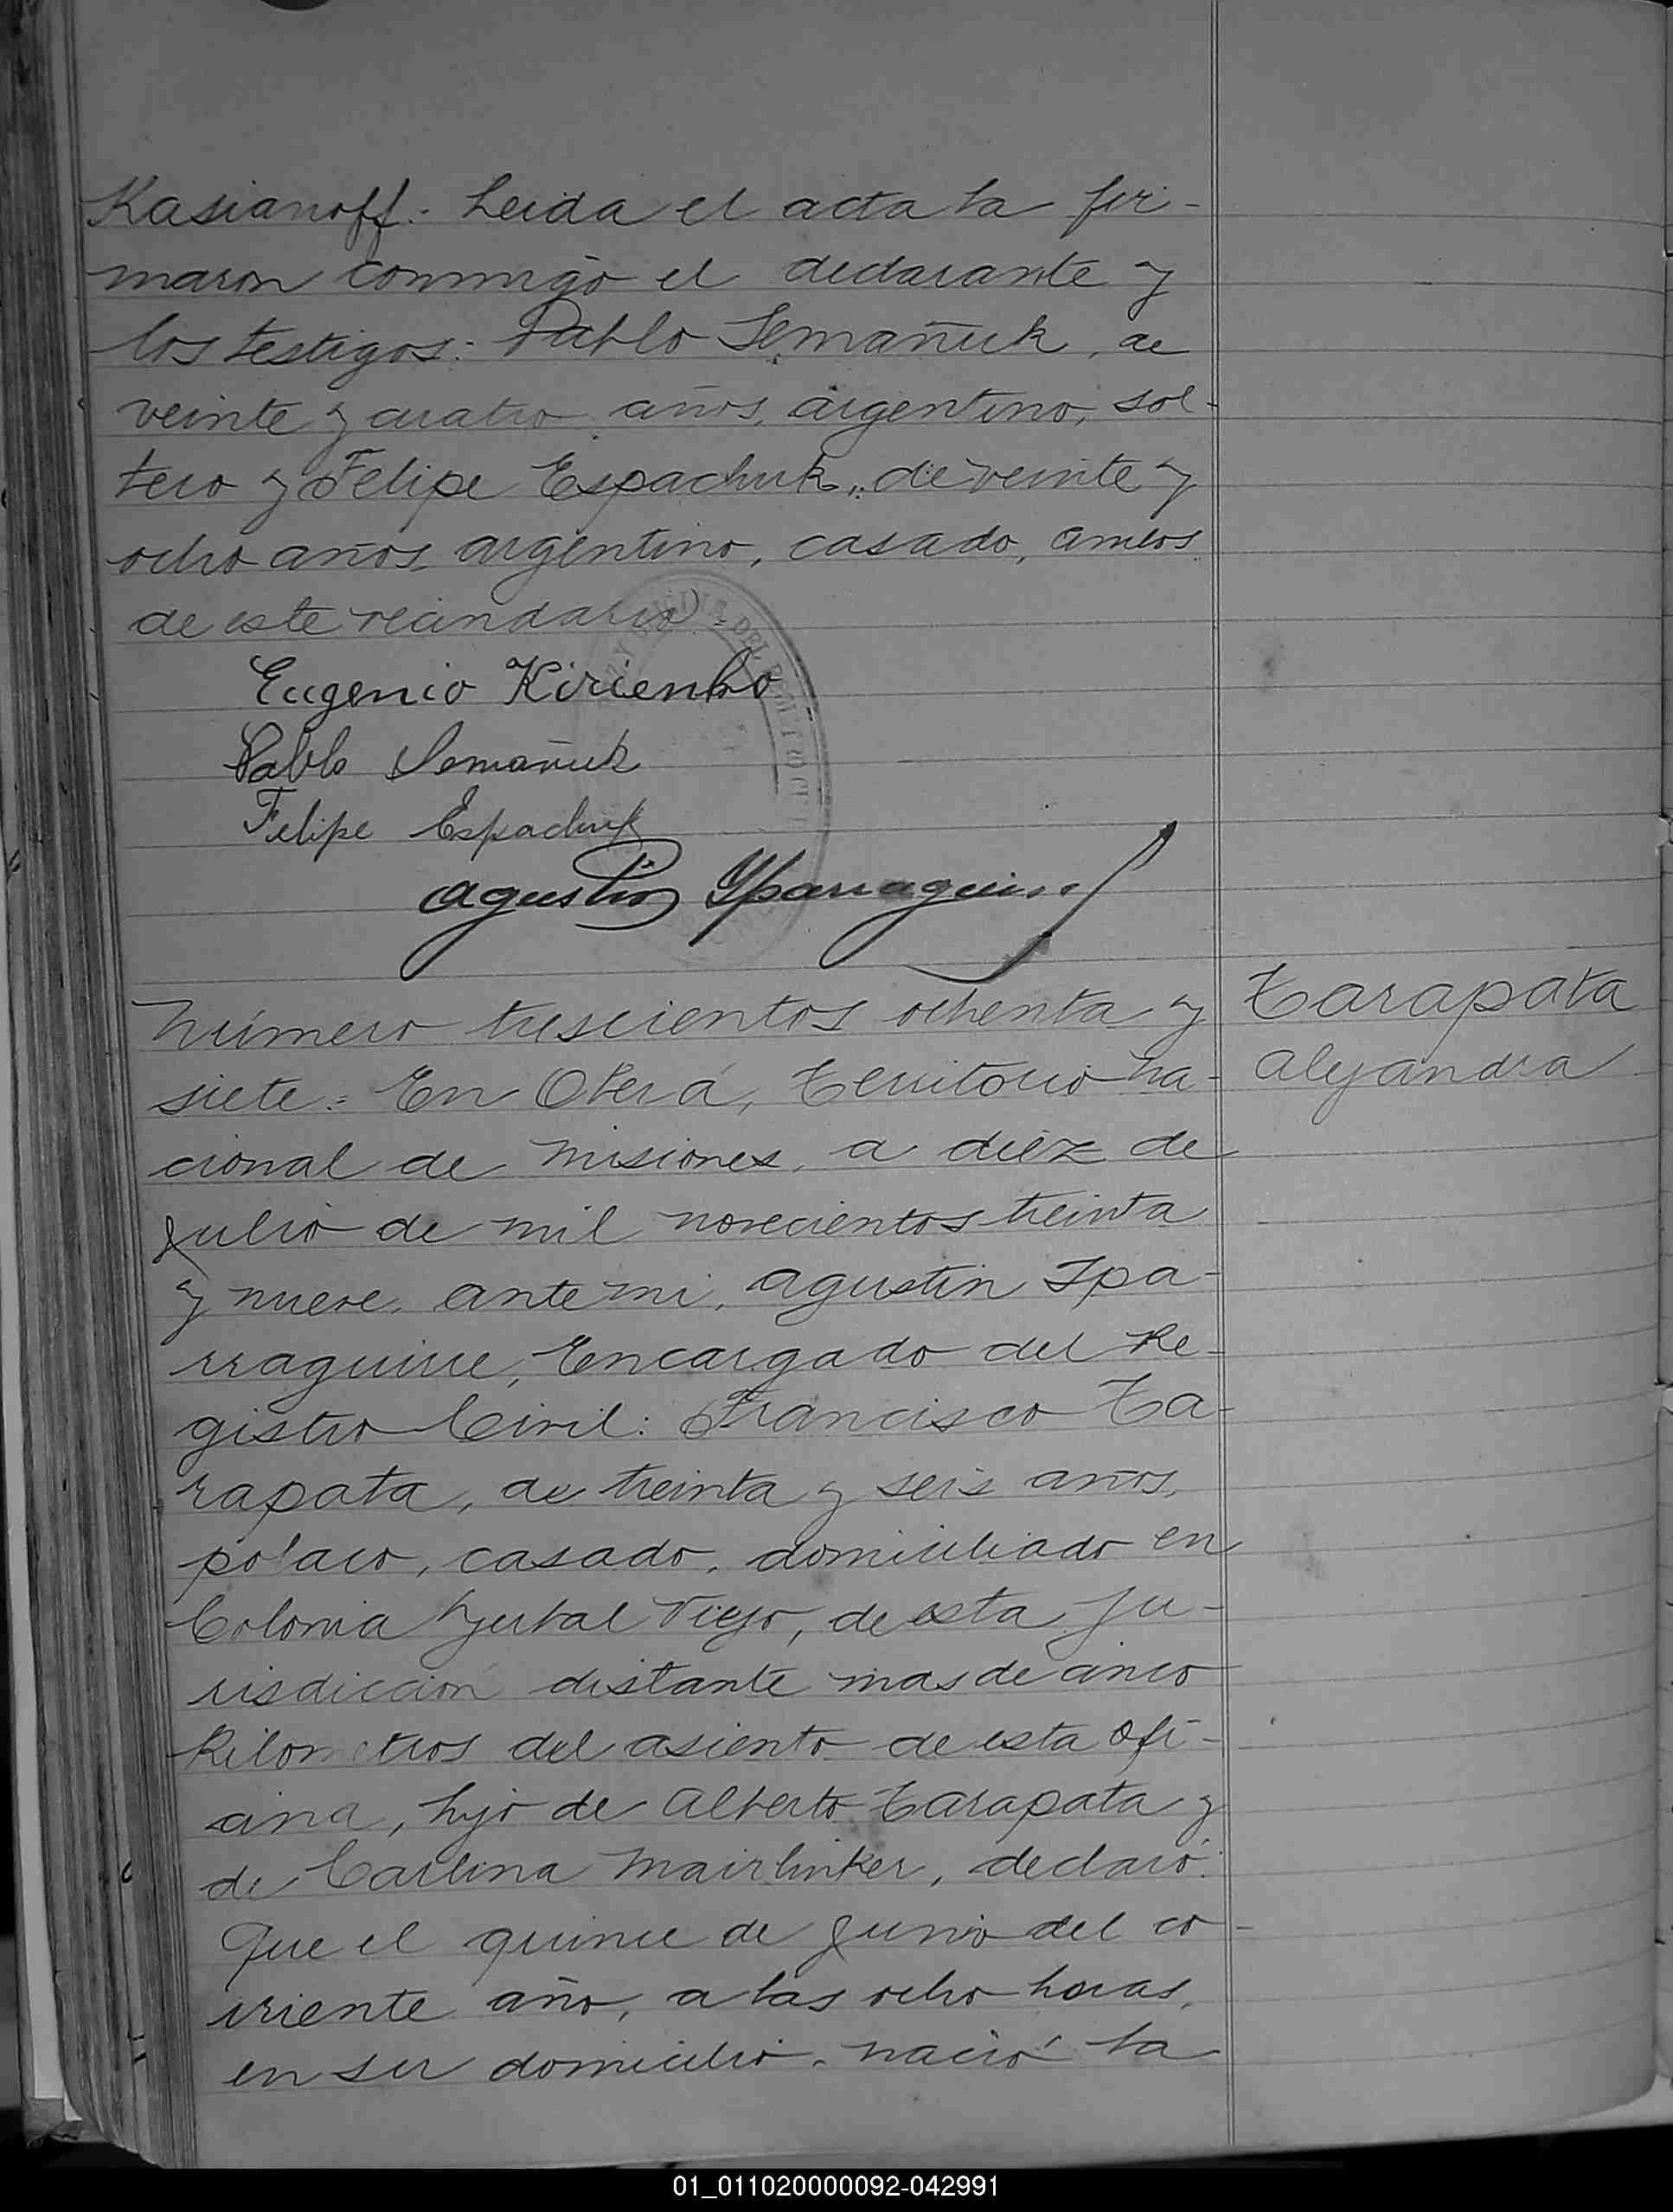 Kasianoff.- Leida el acta la fir-
maron conmigo el declarante y
los testigos: Pablo Semañuk, de
veinte y cuatro años, argentino, sol-
tero y Felipe Espachuk, de veinte y
ocho años, argentino, casado, ambos
de este vecindario.-
Eugenio Kirienko
Pablo Semañuk
Felipe Espachuk
Agustin Yparraguirre
Número trescientos ochenta y
siete = En Oberá, Territorio Na-
cional de Misiones, a diez de
Julio de mil novecientos treinta
y nueve, ante mi, Agustin Ipa-
rraguirre, Encargado del Re-
gistro Civil: Francisco Ta-
rapata, de treinta y seis años,
polaco, casado, domiciliado en
Colonia Yerbal Viejo, de esta Ju-
risdicción distante mas de cinco
Kilometros del asiento de esta Ofi-
cina, hijo de Alberto Tarapata y
de Carlina Mairlinker, declaró:
Que el quince de Junio del co-
rriente año, a las ocho horas,
en su domicilio, nació la
Tarapata
Alejandra
DEL
01_011020000092-042991